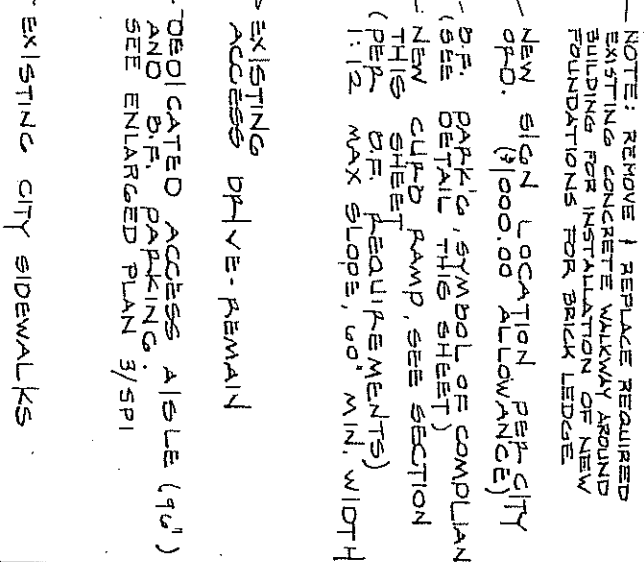 NOTE: REMOVE & REPLACE REQUIRED
EXISTING CONCRETE WALKWAY AROUND
BUILDING FOR INSTALLATION OF NEW
FOUNDATIONS FOR BRICK LEDGE
NEW SIGN LOCATION PER CITY
ORD. ($1000.00 ALLOWANCE)
B.F. PARK'G, SYMBOL OF COMPLIAN
(SEE DETAIL THIS SHEET)
NEW CURB RAMP, SEE SECTION
THIS SHEET
(PER B.F. REQUIREMENTS)
1:12 MAX SLOPE, 60" MIN. WIDTH
EXISTING
ACCESS DRIVE-REMAIN
DEDICATED ACCESS AISLE (96")
AND B.F. PARKING.
SEE ENLARGED PLAN 3/SP1
EXISTING CITY SIDEWALKS